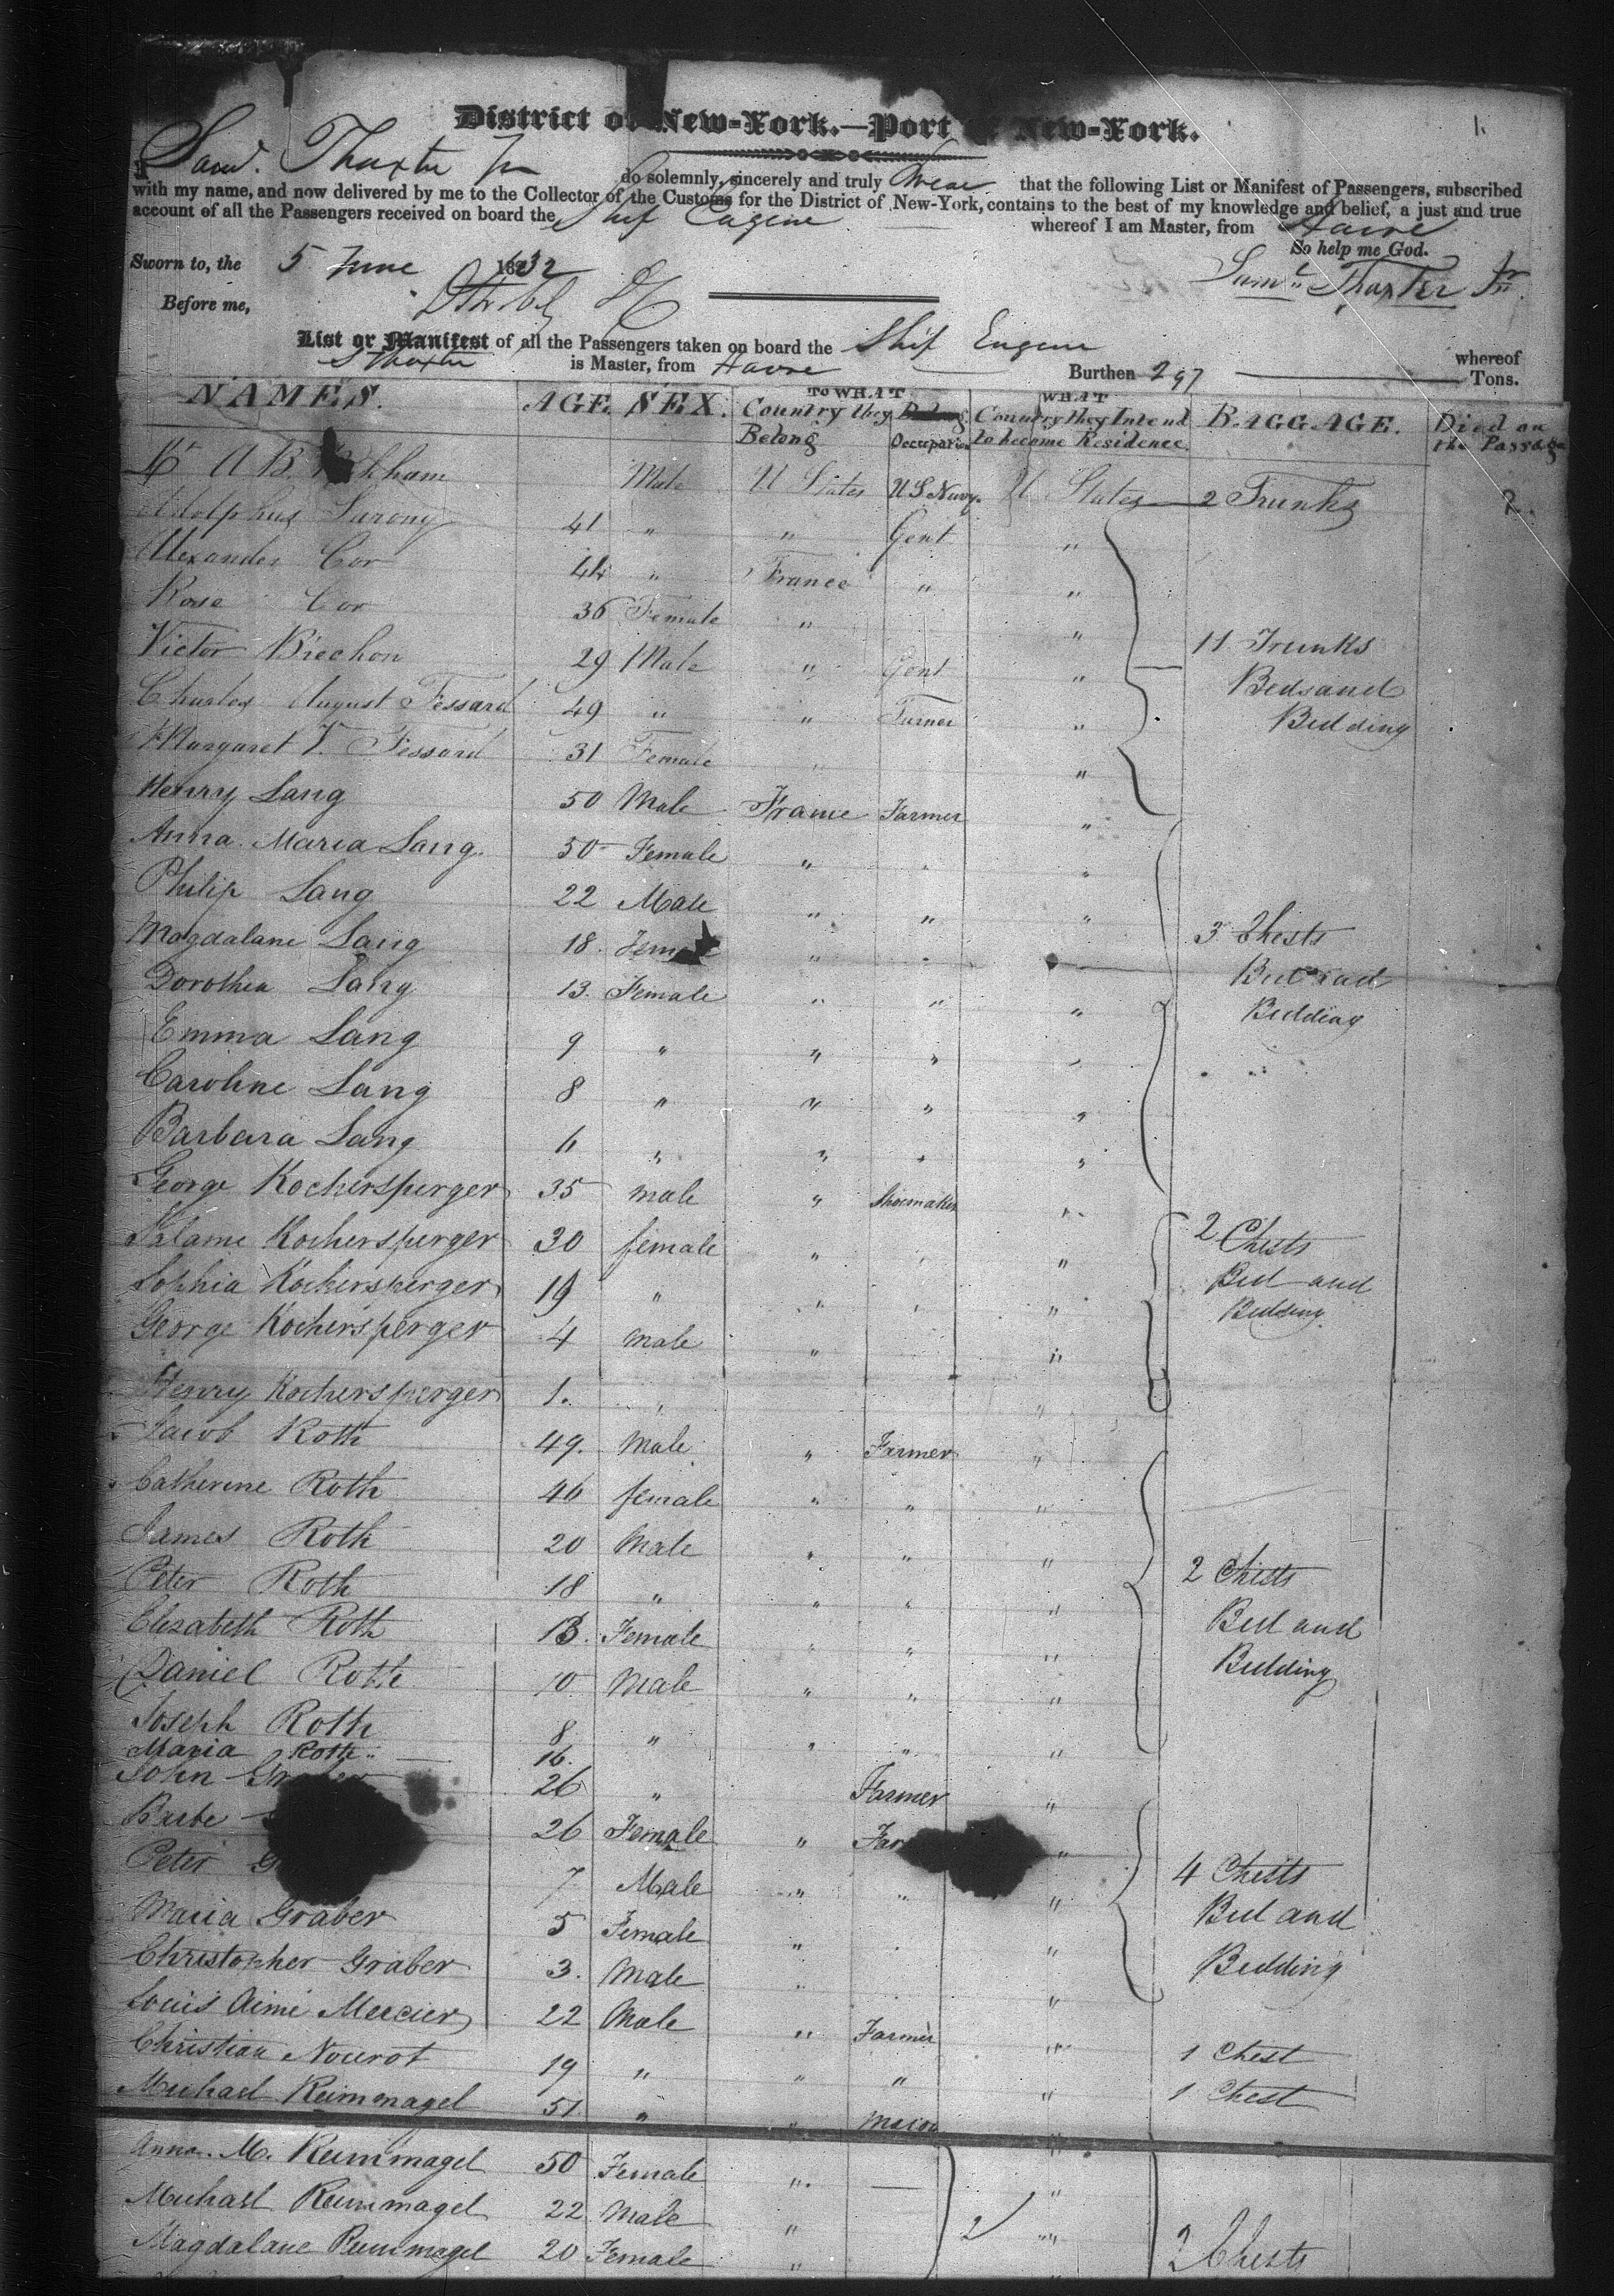 District of New-York.—Port of New-York.
I Saml. Thaxter Jr do solemnly, sincerely and truly Swear that the following List or Manifest of Passengers, subscribed
with my name, and now delivered by me to the Collector of the Customs for the District of New-York, contains to the best of my knowledge and belief, a just and true
account of all the Passengers received on board the Ship Eugene whereof I am Master, from Havre
So help me God.
Sworn to, the 5 June 1832 Saml. Thaxter Jr.
Before me,
List or Manifest of all the Passengers taken on board the Ship Eugene whereof
S Thaxter is Master, from Havre Burthen 297 Tons.
NAMES. AGE. SEX. To WHAT Country they Belong Occupation WHAT Country they Intend to become Residence. BAGGAGE. Died on the Passage
A B. Male U States U S Navy. U States 2 Trunks
Adolphus Sarony 41 " " Gent "
Alexander Cor 44 " France " "
Rose Cor 36 Female " "
Victor Brechon 29 Male " Gent " 11 Trunks
Charles August Fessard 49 " " Turner " Beds and
Margaret V. Fessard 31 Female " " Bedding
Henry Lang 50 Male France Farmer "
Anna Maria Lang. 50 Female " "
Philip Lang 22 Male " " "
Magdalane Lang 18. Female " 3 Chests
Dorothea Lang 13. Female " " " Bed and
Emma Lang 9 " " " " Bedding
Caroline Lang 8 " " " "
Barbara Lang 6 " " " "
George Kochersperger 35 male " Shoemaker "
Salame Kochersperger 30 female " " 2 Chests
Sophia Kochersperger 19 " " " Bed and
George Kochersperger 4 Male " " Bedding
Henry Kochersperger 1. " "
Jacob Roth 49. Male " Farmer "
Catherine Roth 46 female " " "
James Roth 20 Male " " "
Peter Roth 18 " " " " 2 Chests
Elizabeth Roth 13. Female " " " Bed and
Daniel Roth 10 Male " " " Bedding
Joseph Roth 8 " " " "
Maria Roth 16.
John Graber 26 " Farmer "
Barbe 26 Female " "
Peter 7 Male " " " 4 Chests
Maria Graber 5 Female " " Bed and
Christopher Graber 3. Male " " Bedding
Louis Aimé Mercier 22 Male " Farmer "
Christian Nourot 19 " " " " 1 Chest
Michael Reimmagel 51 " " Mason 1 Chest
Anna. M. Reimmagel 50 Female " — "
Michael Reimmagel 22 Male " "
Magdalane Reimmagel 20 Female " 2 Chests